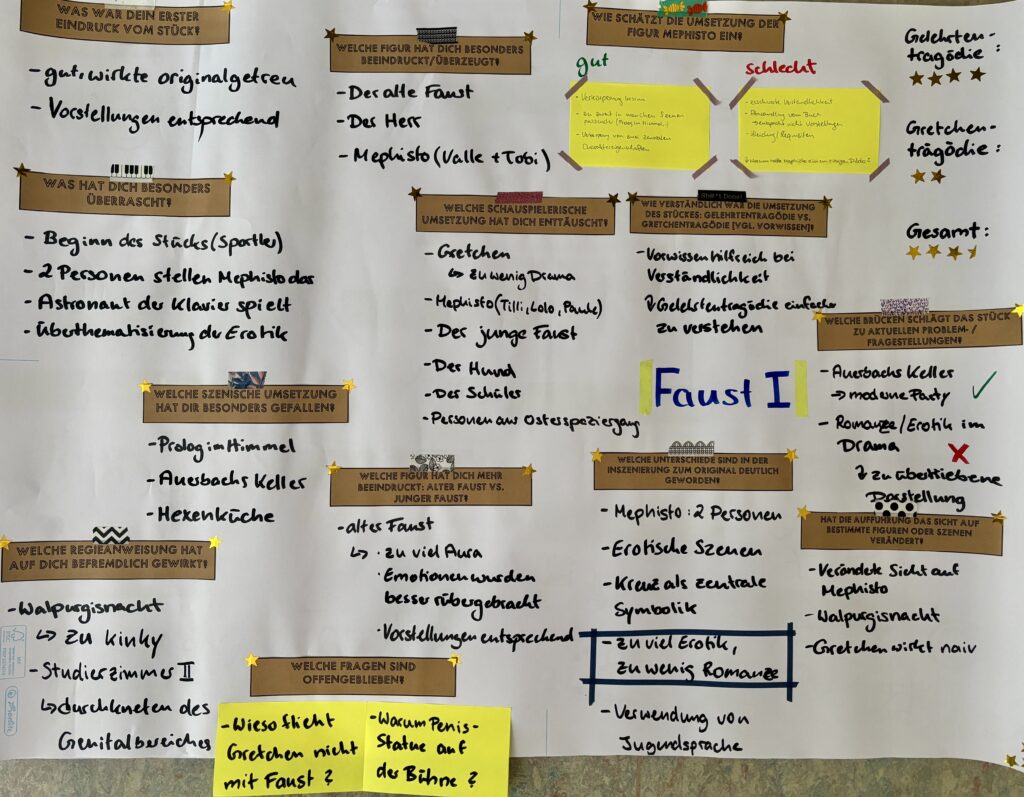 WAS WAR DEIN ERSTER
EINDRUCK VOM STÜCK?
- gut, wirkte originalgetreu
- Vorstellungen entsprechend
WELCHE FIGUR HAT DICH BESONDERS
BEEINDRUCKT/ÜBERZEUGT?
- Der alte Faust
- Der Herr
- Mephisto (Valle + Tobi)
WIE SCHÄTZT DIE UMSETZUNG DER
FIGUR MEPHISTO EIN?
gut
- Verkörperung
- Zu zweit in manchen Szenen
(Prolog im Himmel)
- von zwei
Charaktereigenschaften
schlecht
- erschwerte Verständlichkeit
- vom Buch
nicht Vorstellungen
- Kleidung/Requisiten
Gelehrten-
tragödie :
Gretchen-
trägödie :
Gesamt :
WAS HAT DICH BESONDERS
ÜBERRASCHT?
- Beginn des Stücks (Sportler)
- 2 Personen stellen Mephisto das
- Astronaut der Klavier spielt
- Überthematisierung der Erotik
WELCHE SCHAUSPIELERISCHE
UMSETZUNG HAT DICH ENTTÄUSCHT?
- Gretchen
↳ zu wenig Drama
- Mephisto (Tilli, Lolo, Paule)
- Der junge Faust
- Der Hund
- Der Schüler
- Personen aus Osterspaziergang
That's Documents
WIE VERSTÄNDLICH WAR DIE UMSETZUNG
DES STÜCKES: GELEHRTENTRAGÖDIE VS.
GRETCHENTRAGÖDIE (VGL. VORWISSEN)?
- Vorwissen hilfreich bei
Verständlichkeit
↳ Gelehrtentragödie einfacher
zu verstehen
WELCHE BRÜCKEN SCHLÄGT DAS STÜCK
ZU AKTUELLEN PROBLEM-/
FRAGESTELLUNGEN?
- Auerbachs Keller
→ moderne Party ✓
- Romanze/Erotik im
Drama X
↳ zu übertriebene
Darstellung
Faust I
WELCHE SZENISCHE UMSETZUNG
HAT DIR BESONDERS GEFALLEN?
- Prolog im Himmel
- Auerbachs Keller
- Hexenküche
WELCHE FIGUR HAT DICH MEHR
BEEINDRUCKT: ALTER FAUST VS.
JUNGER FAUST?
- alter Faust
↳ · zu viel Aura
· Emotionen wurden
besser rübergebracht
· Vorstellungen entsprechend
WELCHE UNTERSCHIEDE SIND IN DER
INSZENIERUNG ZUM ORIGINAL DEUTLICH
GEWORDEN?
- Mephisto : 2 Personen
- Erotische Szenen
- Kreuz als zentrale
Symbolik
- zu viel Erotik,
zu wenig Romanze
- Verwendung von
Jugendsprache
HAT DIE AUFFÜHRUNG DAS SICHT AUF
BESTIMMTE FIGUREN ODER SZENEN
VERÄNDERT?
- Veränderte Sicht auf
Mephisto
- Walpurgisnacht
- Gretchen wirkt naiv
WELCHE REGIEANWEISUNG HAT
AUF DICH BEFREMDLICH GEWIRKT?
- Walpurgisnacht
↳ zu kinky
- Studierzimmer II
↳ durchkneten des
Genitalbereiches
WELCHE FRAGEN SIND
OFFENGEBLIEBEN?
- Wieso flieht
Gretchen nicht
mit Faust ?
- Warum Penis-
Statue auf
der Bühne ?